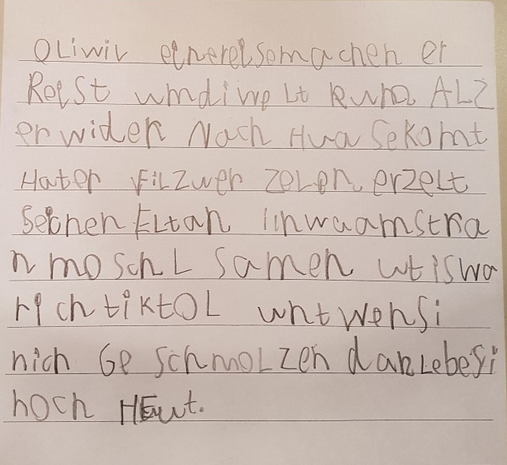 OLiwiL einereisemachen er
Reist umdiweLt Rund ALZ
er wider Nach Huasekomt
Hater FiLzwer zelen. erzelt
SeinenELtan iinwaamstra
n moschL samen utiswa
richtiktOL untwensi
nich GeschmoLzen danLebesi
noch HEut.